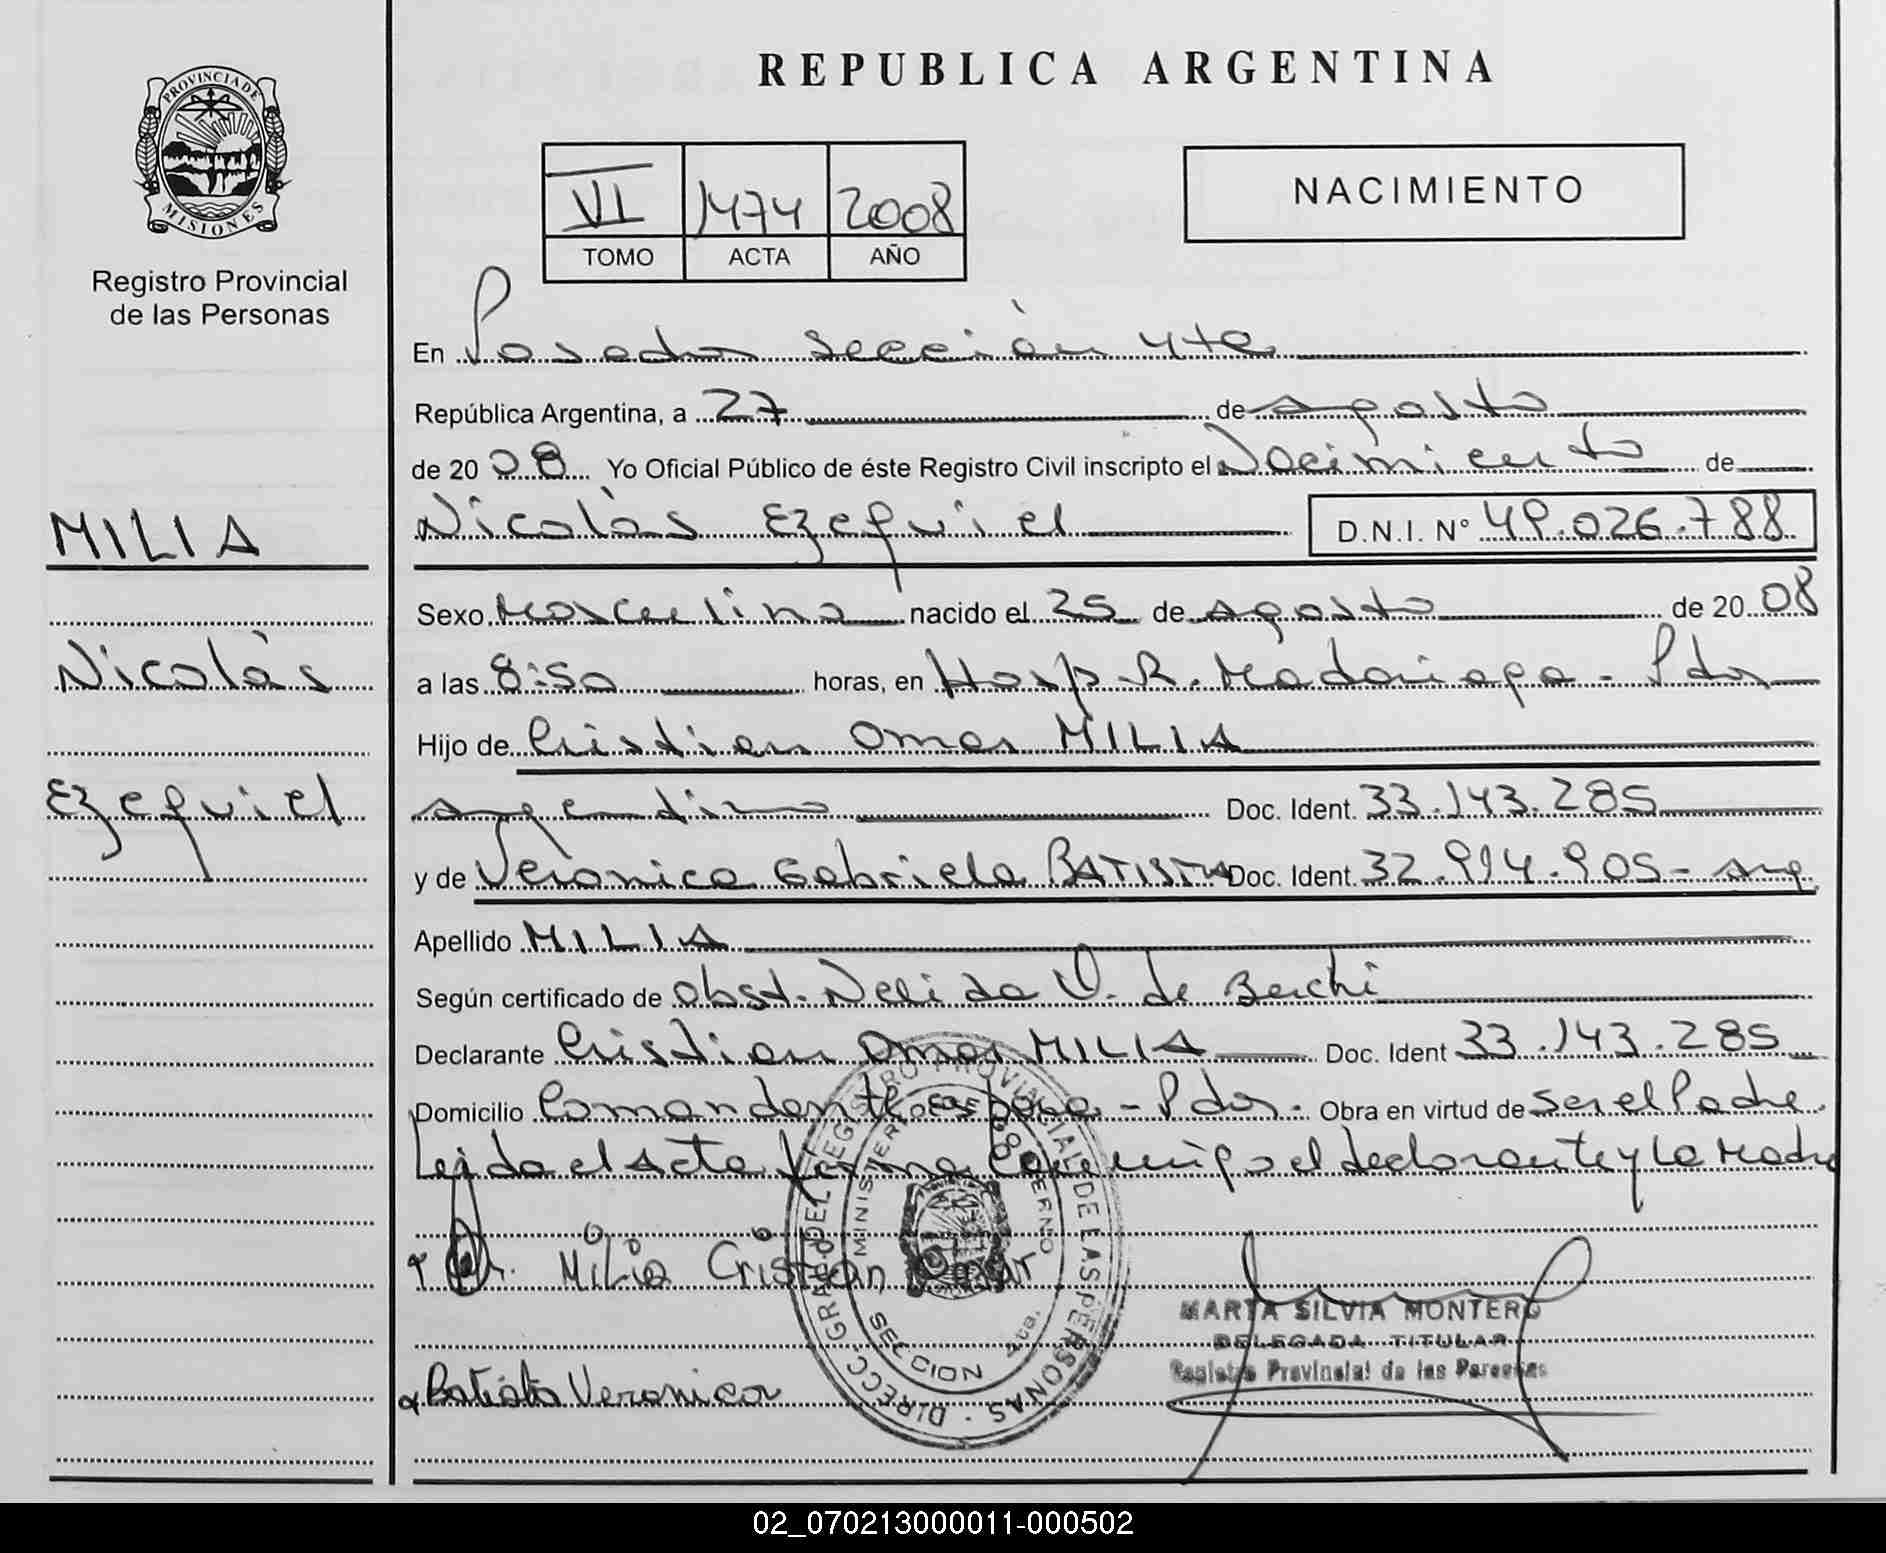 PROVINCIA DE
MISIONES
Registro Provincial
de las Personas
MILIA
Nicolás
Ezequiel
REPUBLICA ARGENTINA
VI 1474 2008
TOMO ACTA AÑO
NACIMIENTO
En Posadas sección 4ta
República Argentina, a 27 de agosto
de 20 08 Yo Oficial Público de éste Registro Civil inscripto el Nacimiento de
Nicolás Ezequiel D.N.I. N° 49.026.788
Sexo Masculino nacido el 25 de agosto de 20 08
a las 8:50 horas, en Hosp R. Madariaga - Pdas
Hijo de Cristian Omar MILIA
argentino Doc. Ident. 33.143.285
y de Verónica Gabriela BATISTA Doc. Ident. 32.914.905 - arg
Apellido MILIA
Según certificado de Obst. Nelida V. de Berchi
Declarante Cristian Omar MILIA Doc. Ident 33.143.285
Domicilio Comandante - Pdas. Obra en virtud de ser el Padre.
Leida el Acta firma conmigo el declarante y La Madre
Milia Cristian Omar
Batista Veronica
MARTA SILVIA MONTERO
DELEGADA TITULAR
Registro Provincial de las Personas
DIRECC. GRAL. DEL REGISTRO PROVINCIAL DE LAS PERSONAS
MINISTERIO DE GOBIERNO
SECCION 4ta.
02_070213000011-000502